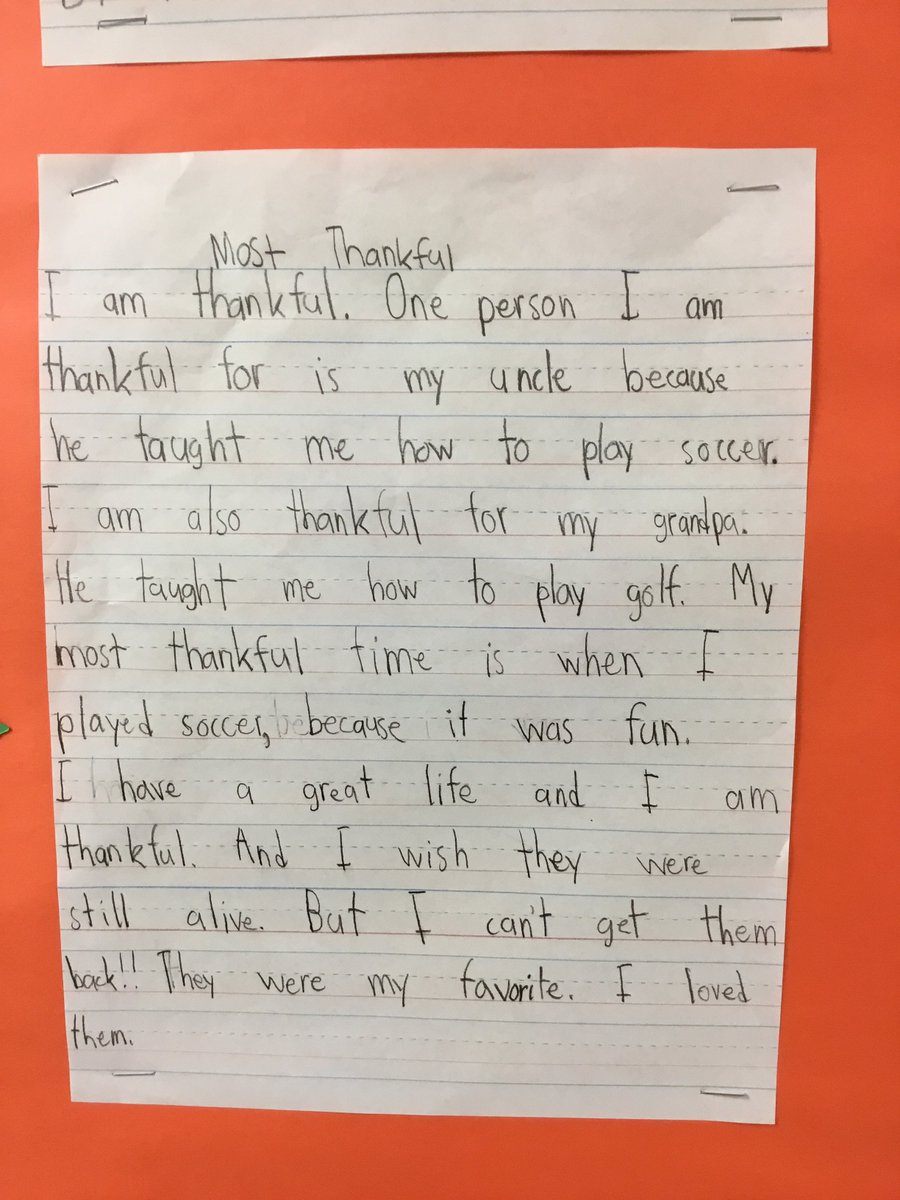 Most Thankful
I am thankful. One person I am
thankful for is my uncle because
he taught me how to play soccer.
I am also thankful for my grandpa.
He taught me how to play golf. My
most thankful time is when I
played soccer, because it was fun.
I have a great life and I am
thankful. And I wish they were
still alive. But I can't get them
back!! They were my favorite. I loved
them.